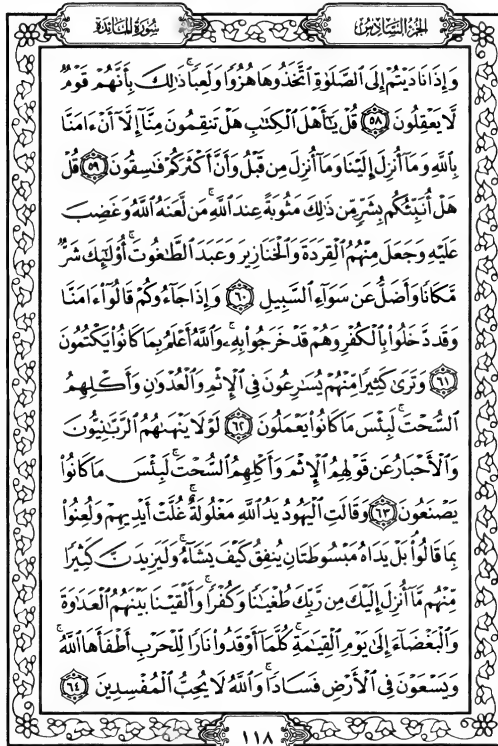 الجزء السادس
سورة المائدة
وَإِذَا نَادَيْتُمْ إِلَى ٱلصَّلَوٰةِ ٱتَّخَذُوهَا هُزُوًا وَلَعِبًا ۚ ذَٰلِكَ بِأَنَّهُمْ قَوْمٌ
لَّا يَعْقِلُونَ ٥٨ قُلْ يَـٰٓأَهْلَ ٱلْكِتَـٰبِ هَلْ تَنقِمُونَ مِنَّآ إِلَّآ أَنْ ءَامَنَّا
بِٱللَّهِ وَمَآ أُنزِلَ إِلَيْنَا وَمَآ أُنزِلَ مِن قَبْلُ وَأَنَّ أَكْثَرَكُمْ فَـٰسِقُونَ ٥٩ قُلْ
هَلْ أُنَبِّئُكُم بِشَرٍّ مِّن ذَٰلِكَ مَثُوبَةً عِندَ ٱللَّهِ ۚ مَن لَّعَنَهُ ٱللَّهُ وَغَضِبَ
عَلَيْهِ وَجَعَلَ مِنْهُمُ ٱلْقِرَدَةَ وَٱلْخَنَازِيرَ وَعَبَدَ ٱلطَّـٰغُوتَ ۚ أُو۟لَـٰٓئِكَ شَرٌّ
مَّكَانًا وَأَضَلُّ عَن سَوَآءِ ٱلسَّبِيلِ ٦٠ وَإِذَا جَآءُوكُمْ قَالُوٓا۟ ءَامَنَّا
وَقَد دَّخَلُوا۟ بِٱلْكُفْرِ وَهُمْ قَدْ خَرَجُوا۟ بِهِۦ ۚ وَٱللَّهُ أَعْلَمُ بِمَا كَانُوا۟ يَكْتُمُونَ
٦١ وَتَرَىٰ كَثِيرًا مِّنْهُمْ يُسَـٰرِعُونَ فِى ٱلْإِثْمِ وَٱلْعُدْوَٰنِ وَأَكْلِهِمُ
ٱلسُّحْتَ ۚ لَبِئْسَ مَا كَانُوا۟ يَعْمَلُونَ ٦٢ لَوْلَا يَنْهَىٰهُمُ ٱلرَّبَّـٰنِيُّونَ
وَٱلْأَحْبَارُ عَن قَوْلِهِمُ ٱلْإِثْمَ وَأَكْلِهِمُ ٱلسُّحْتَ ۚ لَبِئْسَ مَا كَانُوا۟
يَصْنَعُونَ ٦٣ وَقَالَتِ ٱلْيَهُودُ يَدُ ٱللَّهِ مَغْلُولَةٌ ۚ غُلَّتْ أَيْدِيهِمْ وَلُعِنُوا۟
بِمَا قَالُوا۟ ۘ بَلْ يَدَاهُ مَبْسُوطَتَانِ يُنفِقُ كَيْفَ يَشَآءُ ۚ وَلَيَزِيدَنَّ كَثِيرًا
مِّنْهُم مَّآ أُنزِلَ إِلَيْكَ مِن رَّبِّكَ طُغْيَـٰنًا وَكُفْرًا ۚ وَأَلْقَيْنَا بَيْنَهُمُ ٱلْعَدَٰوَةَ
وَٱلْبَغْضَآءَ إِلَىٰ يَوْمِ ٱلْقِيَـٰمَةِ ۚ كُلَّمَآ أَوْقَدُوا۟ نَارًا لِّلْحَرْبِ أَطْفَأَهَا ٱللَّهُ ۚ
وَيَسْعَوْنَ فِى ٱلْأَرْضِ فَسَادًا ۚ وَٱللَّهُ لَا يُحِبُّ ٱلْمُفْسِدِينَ ٦٤
١١٨